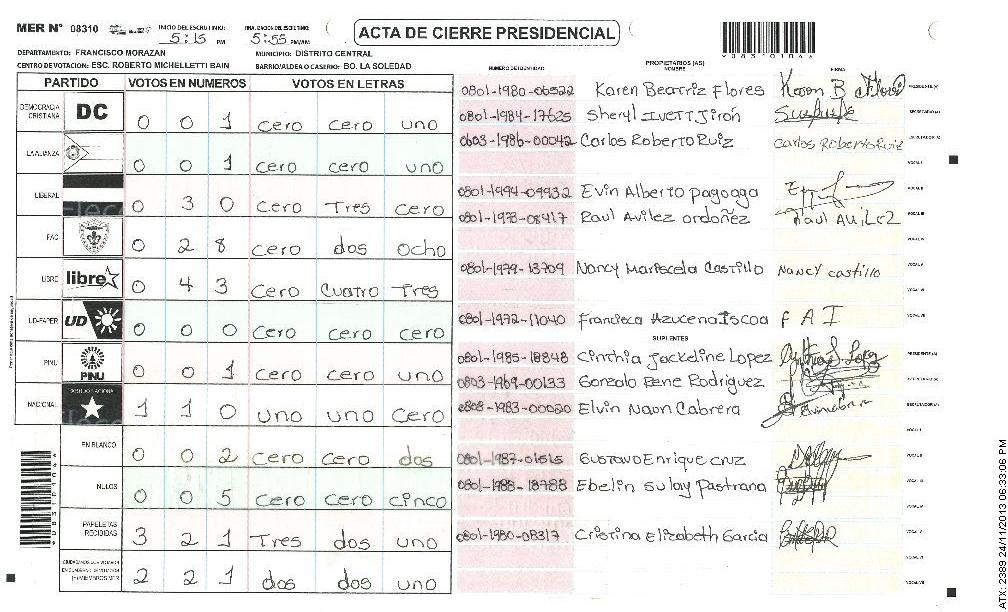 MER Nº 08310 INICIO DEL ESCRUTINIO: 5:15 PM FINALIZACION DEL ESCRUTINIO: 5:55 PM/AM
ACTA DE CIERRE PRESIDENCIAL
DEPARTAMENTO: FRANCISCO MORAZAN MUNICIPIO: DISTRITO CENTRAL
CENTRO DE VOTACION: ESC. ROBERTO MICHELLETTI BAIN BARRIO/ALDEA O CASERIO: BO. LA SOLEDAD
PARTIDO VOTOS EN NUMEROS VOTOS EN LETRAS
DEMOCRACIA CRISTIANA DC 0 0 1 cero cero uno
LA ALIANZA 0 0 1 cero cero uno
LIBERAL 0 3 0 cero Tres cero
FAC 0 2 8 cero dos ocho
LIBRE libre 0 4 3 cero cuatro Tres
UD-FAPER UD 0 0 0 cero cero cero
PINU PINU 0 0 1 cero cero uno
NACIONAL 1 1 0 uno uno cero
EN BLANCO 0 0 2 cero cero dos
NULOS 0 0 5 cero cero cinco
PAPELETAS RECIBIDAS 3 2 1 Tres dos uno
2 2 1 dos dos uno
NUMERO DE IDENTIDAD PROPIETARIOS (AS) NOMBRE FIRMA
0801-1980-06522 Karen Beatriz Flores Karen B Flores PRESIDENTE (A)
0801-1984-17625 Sheryl Ivett Jirón SECRETARIO (A)
0603-1986-00042 Carlos Roberto Ruiz Carlos Roberto Ruiz ESCRUTADOR (A)
VOCAL I
0801-1994-09932 Evin Alberto pagoaga VOCAL II
0801-1973-08417 Raul Avilez ordoñez Raul AviLez VOCAL III
VOCAL IV
0801-1979-13709 Nancy Mariscela Castillo Nancy castillo VOCAL V
VOCAL VI
0801-1972-11040 Francisca Azucena Iscoa F A I VOCAL VII
SUPLENTES
0801-1985-18848 Cinthia Jackeline Lopez PRESIDENTE (A)
0803-1969-00133 Gonzalo Rene Rodriguez SECRETARIO (A)
0808-1983-00020 Elvin Naun Cabrera ESCRUTADOR (A)
VOCAL I
0801-1987-01515 Gustavo Enrique cruz VOCAL II
0801-1988-18788 Ebelin Sulay Pastrana VOCAL III
VOCAL IV
0801-1980-08317 Cristina Elizabeth Garcia VOCAL V
VOCAL VI
VOCAL VII
ATX: 2389 24/11/2013 06:33:06 PM